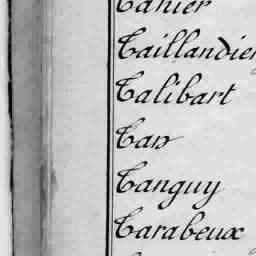 Tahier
Taillandier
Talibart
Tan
Tanguy
Tarabeux